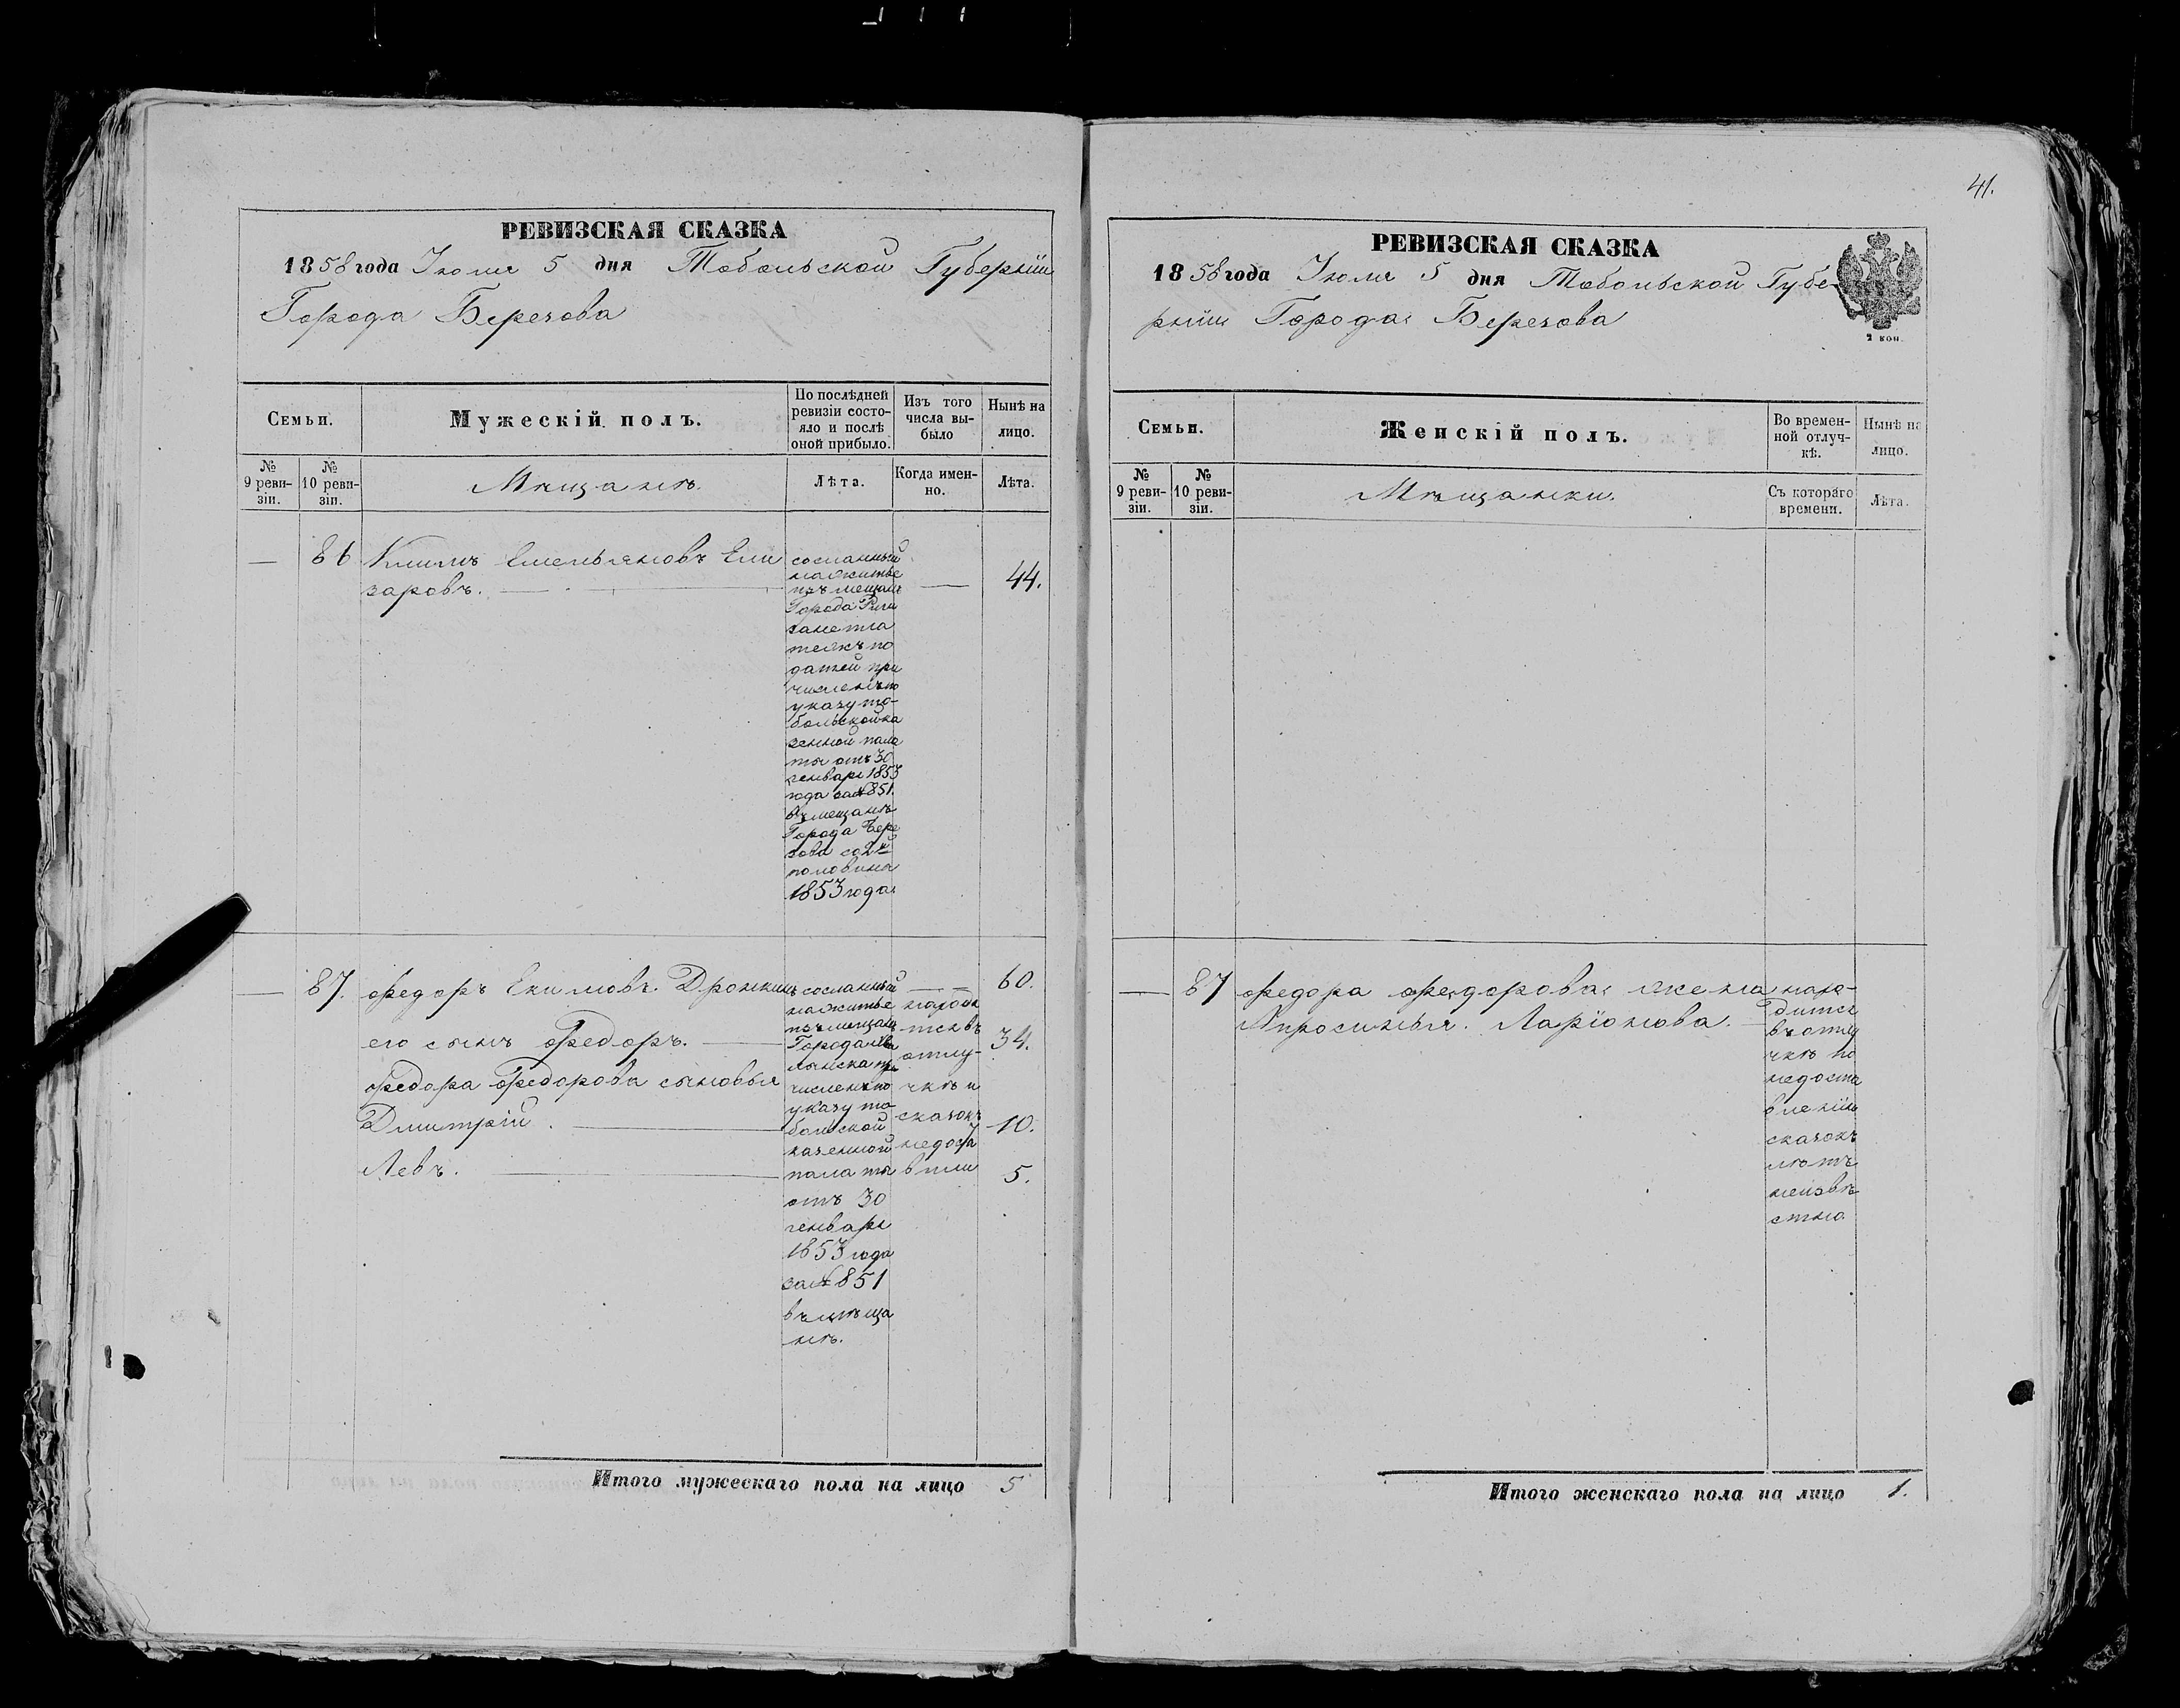 41.
РЕВИЗСКАЯ СКАЗКА
1858 года Іюля 5 дня Тобольской Губерніи
Города Березова
Семьи.
Мужескій полъ.
По послѣдней ревизіи состо-
яло и послѣ
оной прибыло.
Изъ того
числа вы-
было
Нынѣ на
лицо.
№
9 реви-
зіи.
№
10 реви-
зіи.
Мѣщанѣ.
Лѣта.
Когда имен-
но.
Лѣта.
— 86 Климъ Емельяновъ Ели
заровъ.
сосланный
на житье
изъ мещанъ
Города Риги
за не пла
тежъ по
датей при
численъ по
указу то-
больской ка
зенной пала
ты отъ 30
генваря 1853
года за № 851.
въ мещанѣ
Города Бере
зова со 2й
половины
1853 года
—
44.
— 87. Федоръ Екимовъ Дронкинъ
его сынъ Федоръ.
Федора Федорова сыновья
Дмитрій.
Левъ.
сосланный
на житье
изъ мещанъ
Города
численъ по
указу то
больской
казенной
палаты
отъ 30
генваря
1853 года
за № 851
въ мѣща
нѣ.
отлу-
чкѣ и
сказокъ
60.
34.
10.
5.
Итого мужескаго пола на лицо 5
РЕВИЗСКАЯ СКАЗКА
1858 года Іюля 5 дня Тобольской Губе-
рніи Города Березова
2 коп.
Семьи.
Женскій полъ.
Во времен-
ной отлуч-
кѣ.
Нынѣ на
лицо.
№
9 реви-
зіи.
№
10 реви-
зіи.
Мѣщанки.
Съ котораго
времени.
Лѣта.
— 87 Федора Федорова жена
Апросинья. Ларіонова.
нахо-
дится
въ отлу
чкѣ по
недоста
вленію
сказокъ
лѣтъ
неизвѣ
стно
Итого женскаго пола на лицо 1.